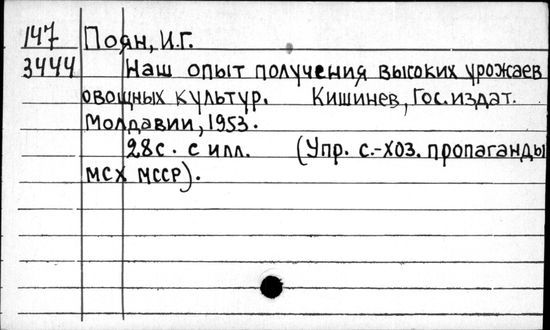 147 Поян, И.Г.
3444 Наш опыт получения высоких урожаев
овощных культур. Кишинев, Гос.издат.
Молдавии, 1953.
28с. с илл. (Упр. с.-хоз. пропаганды
МСХ МССР).